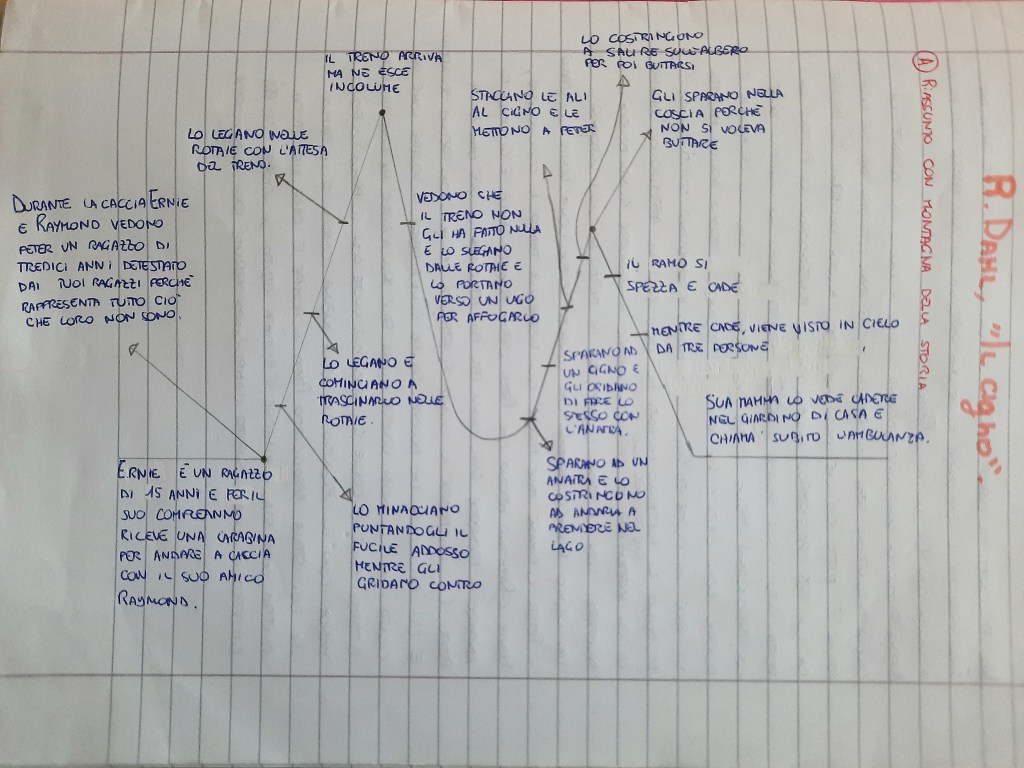 R. DAHL, "IL cigno".
A RIASSUNTO CON MONTAGNA DELLA STORIA.
ERNIE È UN RAGAZZO
DI 15 ANNI E PER IL
SUO COMPLEANNO
RICEVE UNA CARABINA
PER ANDARE A CACCIA
CON IL SUO AMICO
RAYMOND.
DURANTE LA CACCIA ERNIE
E RAYMOND VEDONO
PETER UN RAGAZZO DI
TREDICI ANNI DETESTATO
DAI TUOI RAGAZZI PERCHÈ
RAPPRESENTA TUTTO CIO'
CHE LORO NON SONO.
LO MINACCIANO
PUNTANDOGLI IL
FUCILE ADDOSSO
MENTRE GLI
GRIDANO CONTRO
LO LEGANO E
COMINCIANO A
TRASCINARLO NELLE
ROTAIE.
LO LEGANO NELLE
ROTAIE CON L'ATTESA
DEL TRENO.
IL TRENO ARRIVA
MA NE ESCE
INCOLUME
VEDONO CHE
IL TRENO NON
GLI HA FATTO NULLA
E LO SLEGANO
DALLE ROTAIE E
LO PORTANO
VERSO UN LAGO
PER AFFOGARLO
SPARANO AD UN
ANATRA E LO
COSTRINGONO
AD ANDARLA A
PRENDERE NEL
LAGO
SPARANO AD
UN CIGNO E
GLI GRIDANO
DI FARE LO
STESSO CON
L'ANATRA.
STACCANO LE ALI
AL CIGNO E LE
METTONO A PETER
LO COSTRINGONO
A SALIRE SULL'ALBERO
PER POI BUTTARSI
GLI SPARANO NELLA
COSCIA PERCHÈ
NON SI VOLEVA
BUTTARE
IL RAMO SI
SPEZZA E CADE
MENTRE CADE, VIENE VISTO IN CIELO
DA TRE PERSONE
SUA MAMMA LO VEDE CADERE
NEL GIARDINO DI CASA E
CHIAMA SUBITO L'AMBULANZA.